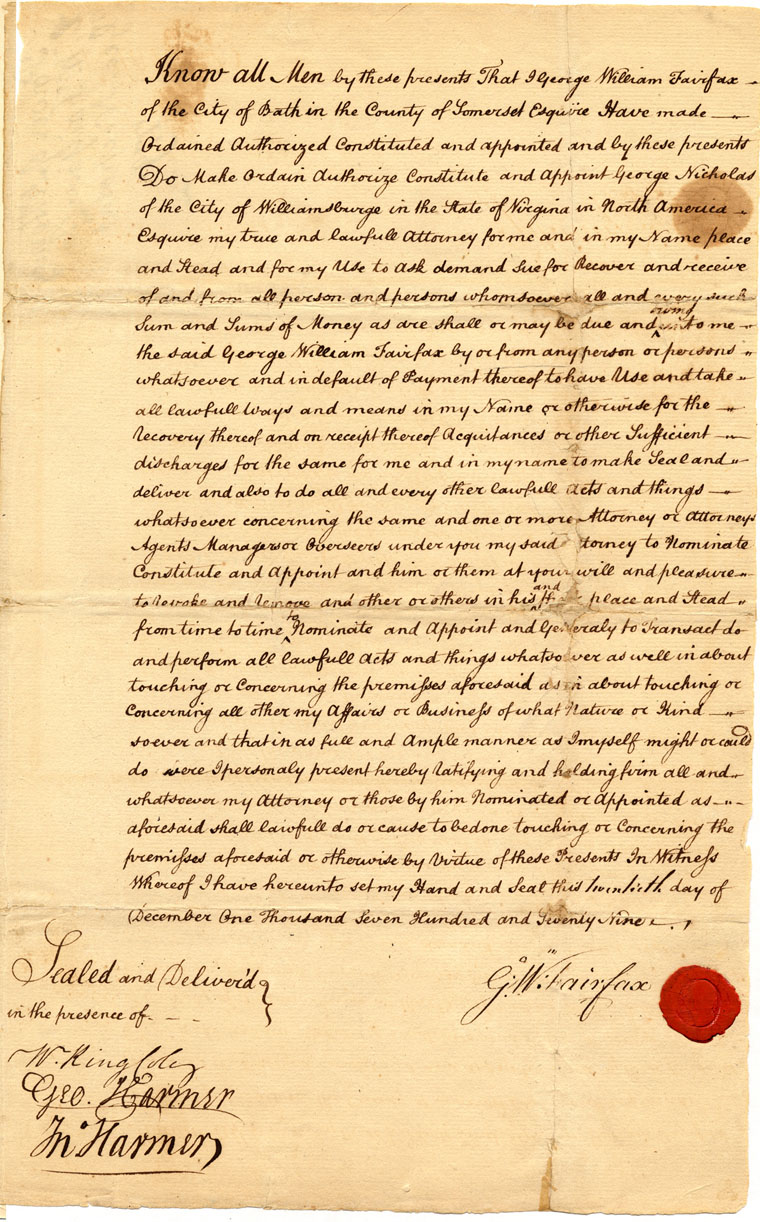 Know all Men by these presents That I George William Fairfax
of the City of Bath in the County of Somerset Esquire Have made
Ordained Authorized Constituted and appointed and by these presents
Do Make Ordain Authorize Constitute and Appoint George Nicholas
of the City of Williamsburge in the State of Virgina in North America
Esquire my true and lawfull Attorney for me and in my Name place
and Stead and for my Use to Ask demand Sue for Recover and receive
of and from all person and persons whomsoever all and every such
owing
Sum and Sums of Money as are shall or may be due and unto me
the said George William Fairfax by or from any person or persons
whatsoever and in default of Payment thereof to have Use and take
all lawfull Ways and means in my Name or otherwise for the
recovery thereof and on receipt thereof Acquitances or other Sufficient
discharges for the same for me and in my name to make Seal and
deliver and also to do all and every other lawfull Acts and things
whatsoever concerning the same and one or more Attorney or Attorneys
Agents Managers or Overseers under you my said torney to Nominate
Constitute and Appoint and him or them at your will and pleasure
and
to revoke and remove and other or others in his place and Stead
to
from time to time Nominate and Appoint and Generaly to Transact do
and perform all lawfull Acts and things whatsoever as well in about
touching or Concerning the premisses aforesaid as in about touching or
Concerning all other my Affairs or Business of what Nature or Kind
soever and that in as full and Ample manner as I myself might or could
do were I personaly present hereby ratifying and holding firm all and
whatsoever my Attorney or those by him Nominated or Appointed as
aforesaid shall lawfull do or cause to be done touching or Concerning the
premisses aforesaid or otherwise by Virtue of these Presents In Witness
Whereof I have hereunto set my Hand and Seal this twentieth day of
December One Thousand Seven Hundred and Seventy Nine
Sealed and Deliver'd
in the presence of
Go: Wm: Fairfax
W. King
Geo. Harmer
Jno Harmer